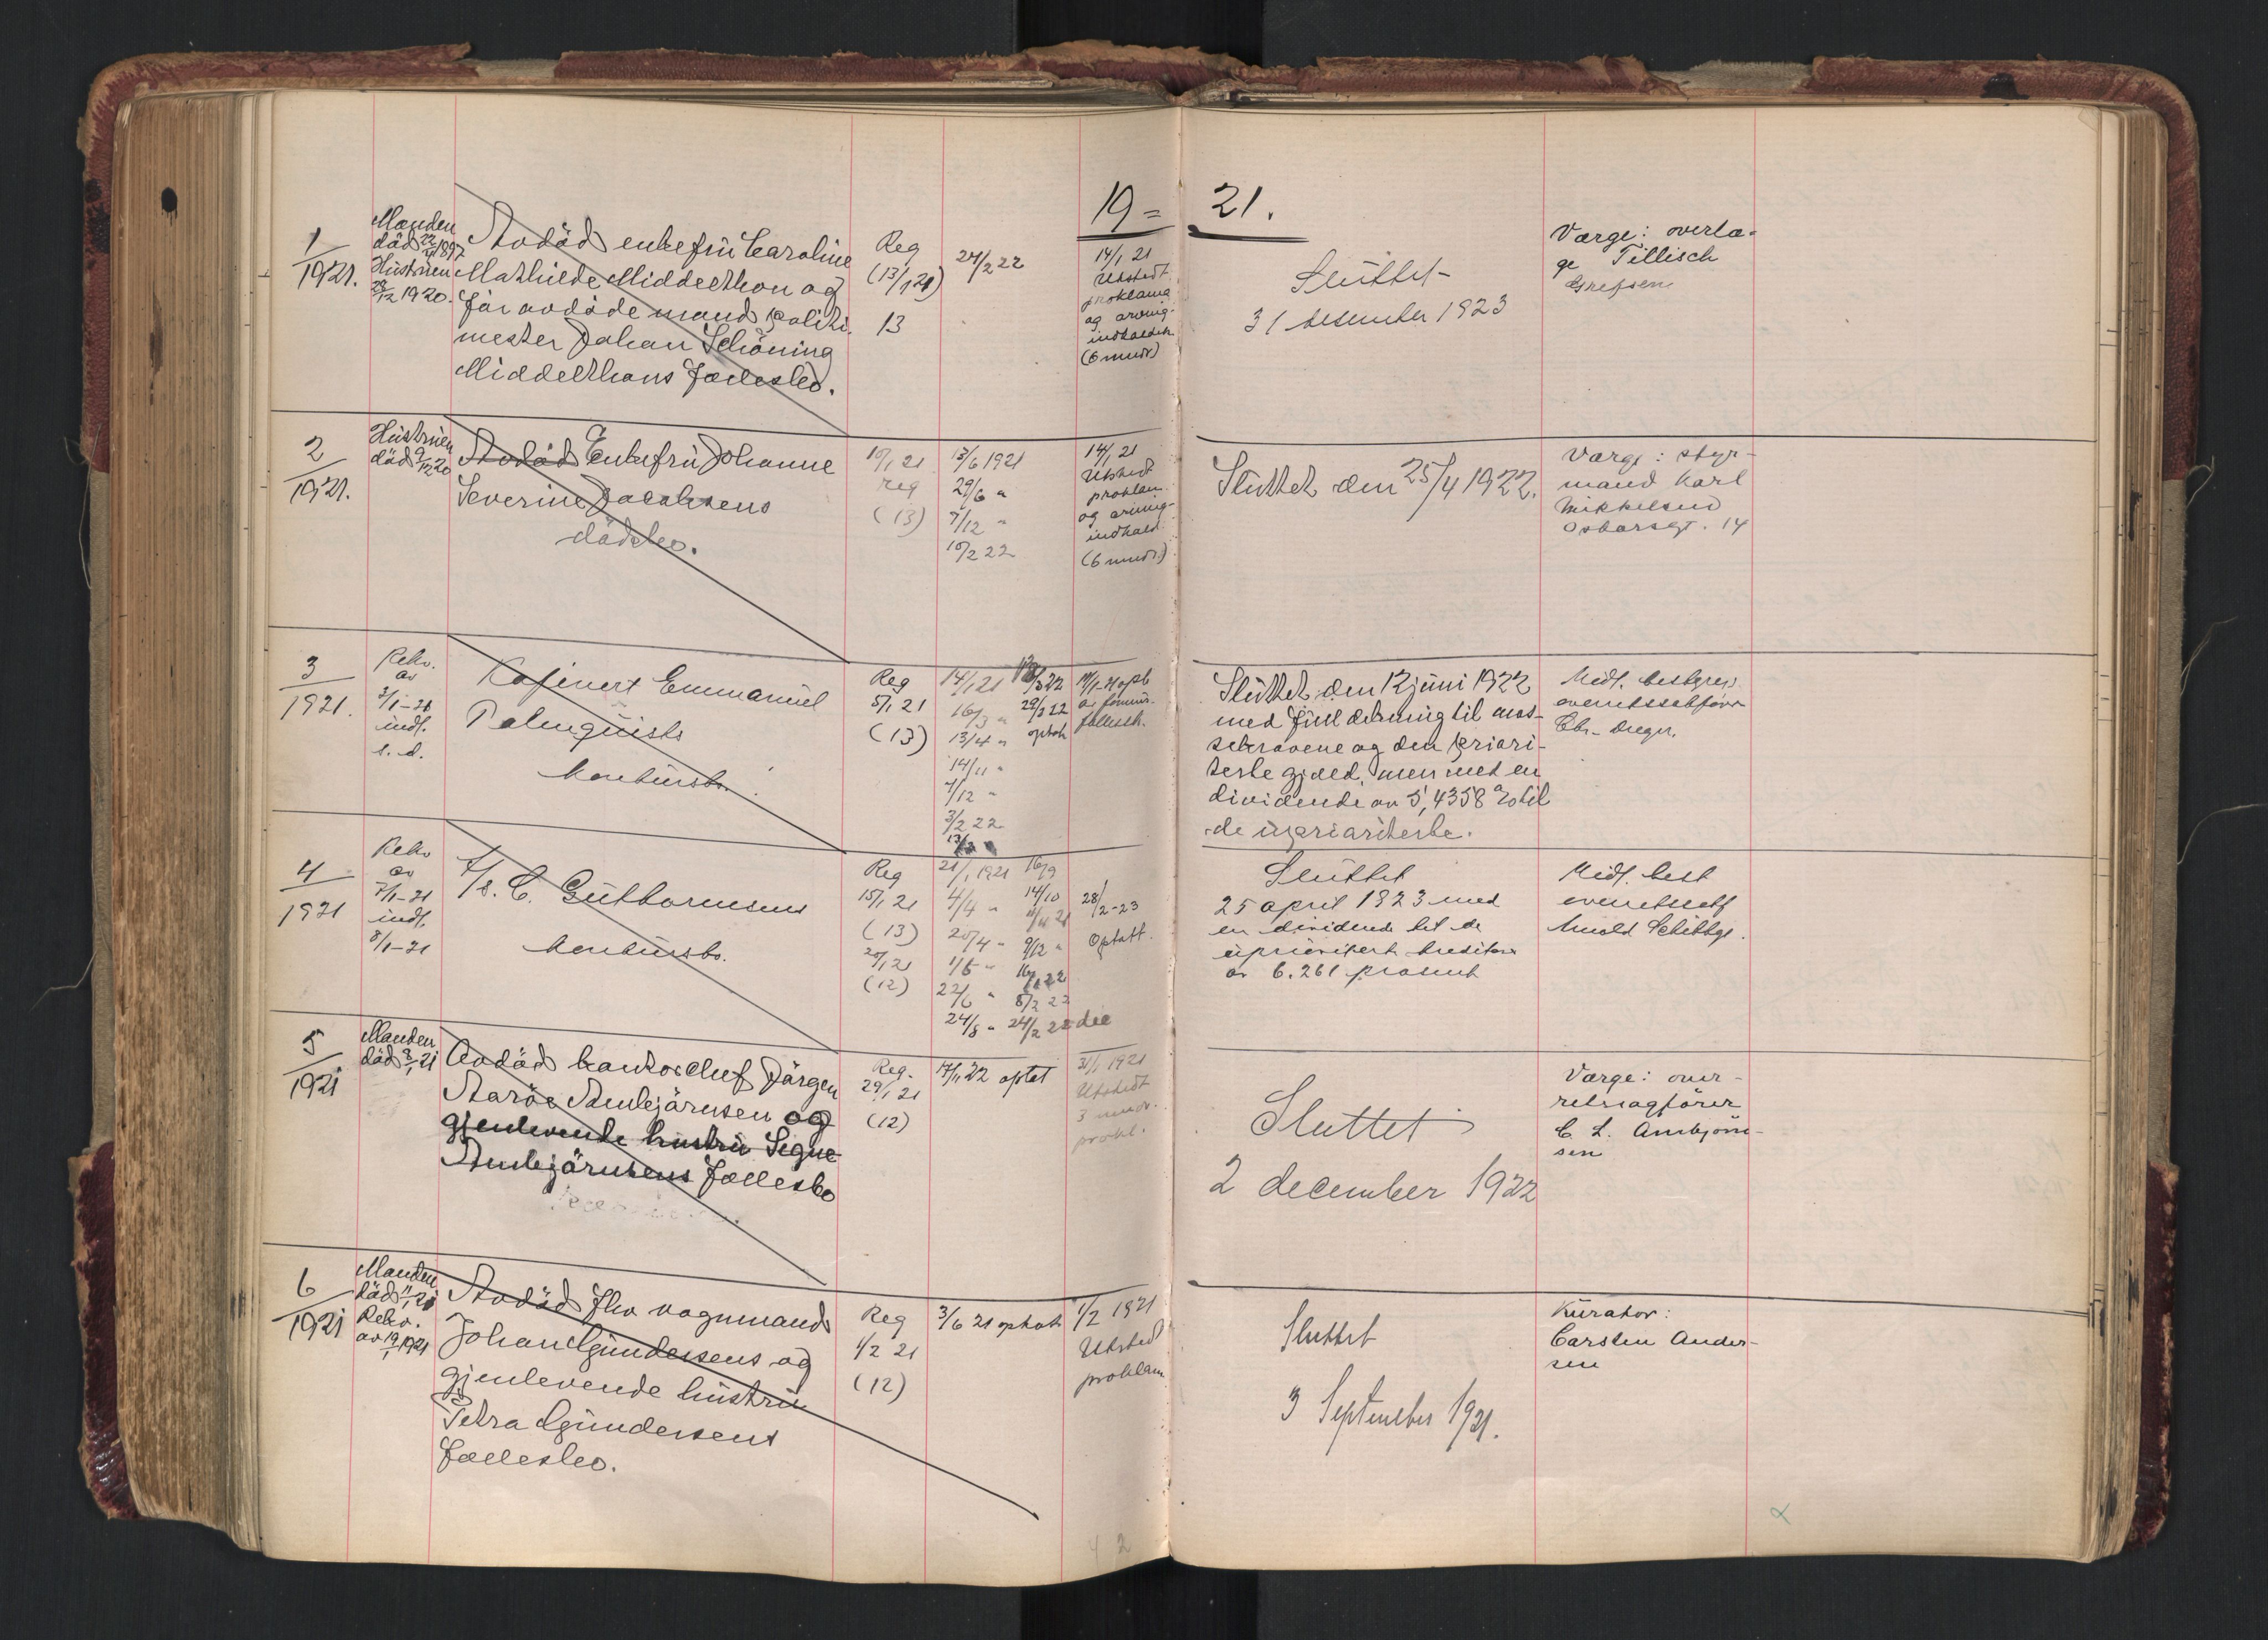 19 = 21.
1
1921.
Manden
död 22/4 1897
Hustruen
28/12 1920.
Avdöd enkefru Caroline
Mathilde Middelthon og
för avdöde mand politi-
mester Johan Schöning
Middelthons fællesbo.
Reg
(13/1 21)
13
24/2 22
14/1 21
Utstedt
proklama
og arving-
indkaldels
(6 mndr)
Sluttet
31 desember 1923
Værge: overlæ-
ge Tillisch
Grefsen
2
1921.
Hustruen
död 9/12 20
Avdöd Enkefru Johanne
Severine Jacobsens
dödsbo.
10/1 21
reg
(13)
13/6 1921
29/6 "
7/12 "
10/2 22
14/1 21
Utstedt
proklam
og arving-
indkald.
(6 mndr.)
Sluttet den 25/4 1922.
Værge: styr-
mand Karl
Mikkelsen
Oskarsgt. 14
3
1921.
Rekv.
av
3/1-21
indl.
s. d.
Emmanuel
Palmquists
konkursbo.
Reg
5/1 21
(13)
14/1 21
16/3 "
13/4 "
14/11 "
7/12 "
3/2 22
29/3 22
optat
fællessk.
Sluttet den 12 juni 1922
med fuld dekning til mas-
sekravene og den priori-
terte gjæld, men med en
dividende av 5,4358 % til
de uprioriterte.
Midl. bestyrer
overretssakförer
4
1921
Rekv
av
7/1-21
indl.
8/1-21
A/S. C. Guttormsens
konkursbo.
Reg
15/1 21
(13)
20/1 21
(12)
21/1 1921
4/4 "
20/4 "
1/6 "
22/6 "
24/8 "
16/9
14/10
9/12 "
8/2 22
24/2 22
28/2-23
Optatt.
Sluttet
25 april 1923 med
en dividende til de
uprioritert kreditorer
av 6.261 prosent
Midl. best
overretssakf
Arnold
5
1921
Manden
död 3/1 21
Avdöd kontorchef Jörgen
Staröe Amlejörnsen og
gjenlevende hustru Signe
Amlejörnsens fællesbo
Reg.
29/1 21
(12)
17/1 22 optat
31/1 1921
Utstedt
3 mndr.
prokl.
Sluttet
2 december 1922
Værge: over-
retssagförer
C. L. Ambjörn-
sen
6
1921
Manden
död 11/1 21
Rekv.
av 19/1 1921
Avdöd fhv vognmand
Johan Gundersens og
gjenlevende hustru
Petra Gundersens
fællesbo.
Reg
1/2 21
(12)
3/6 21 optat
1/2 1921
Utsted
proklam
Sluttet
3 September 1921.
Kurator:
Carsten Ander-
sen